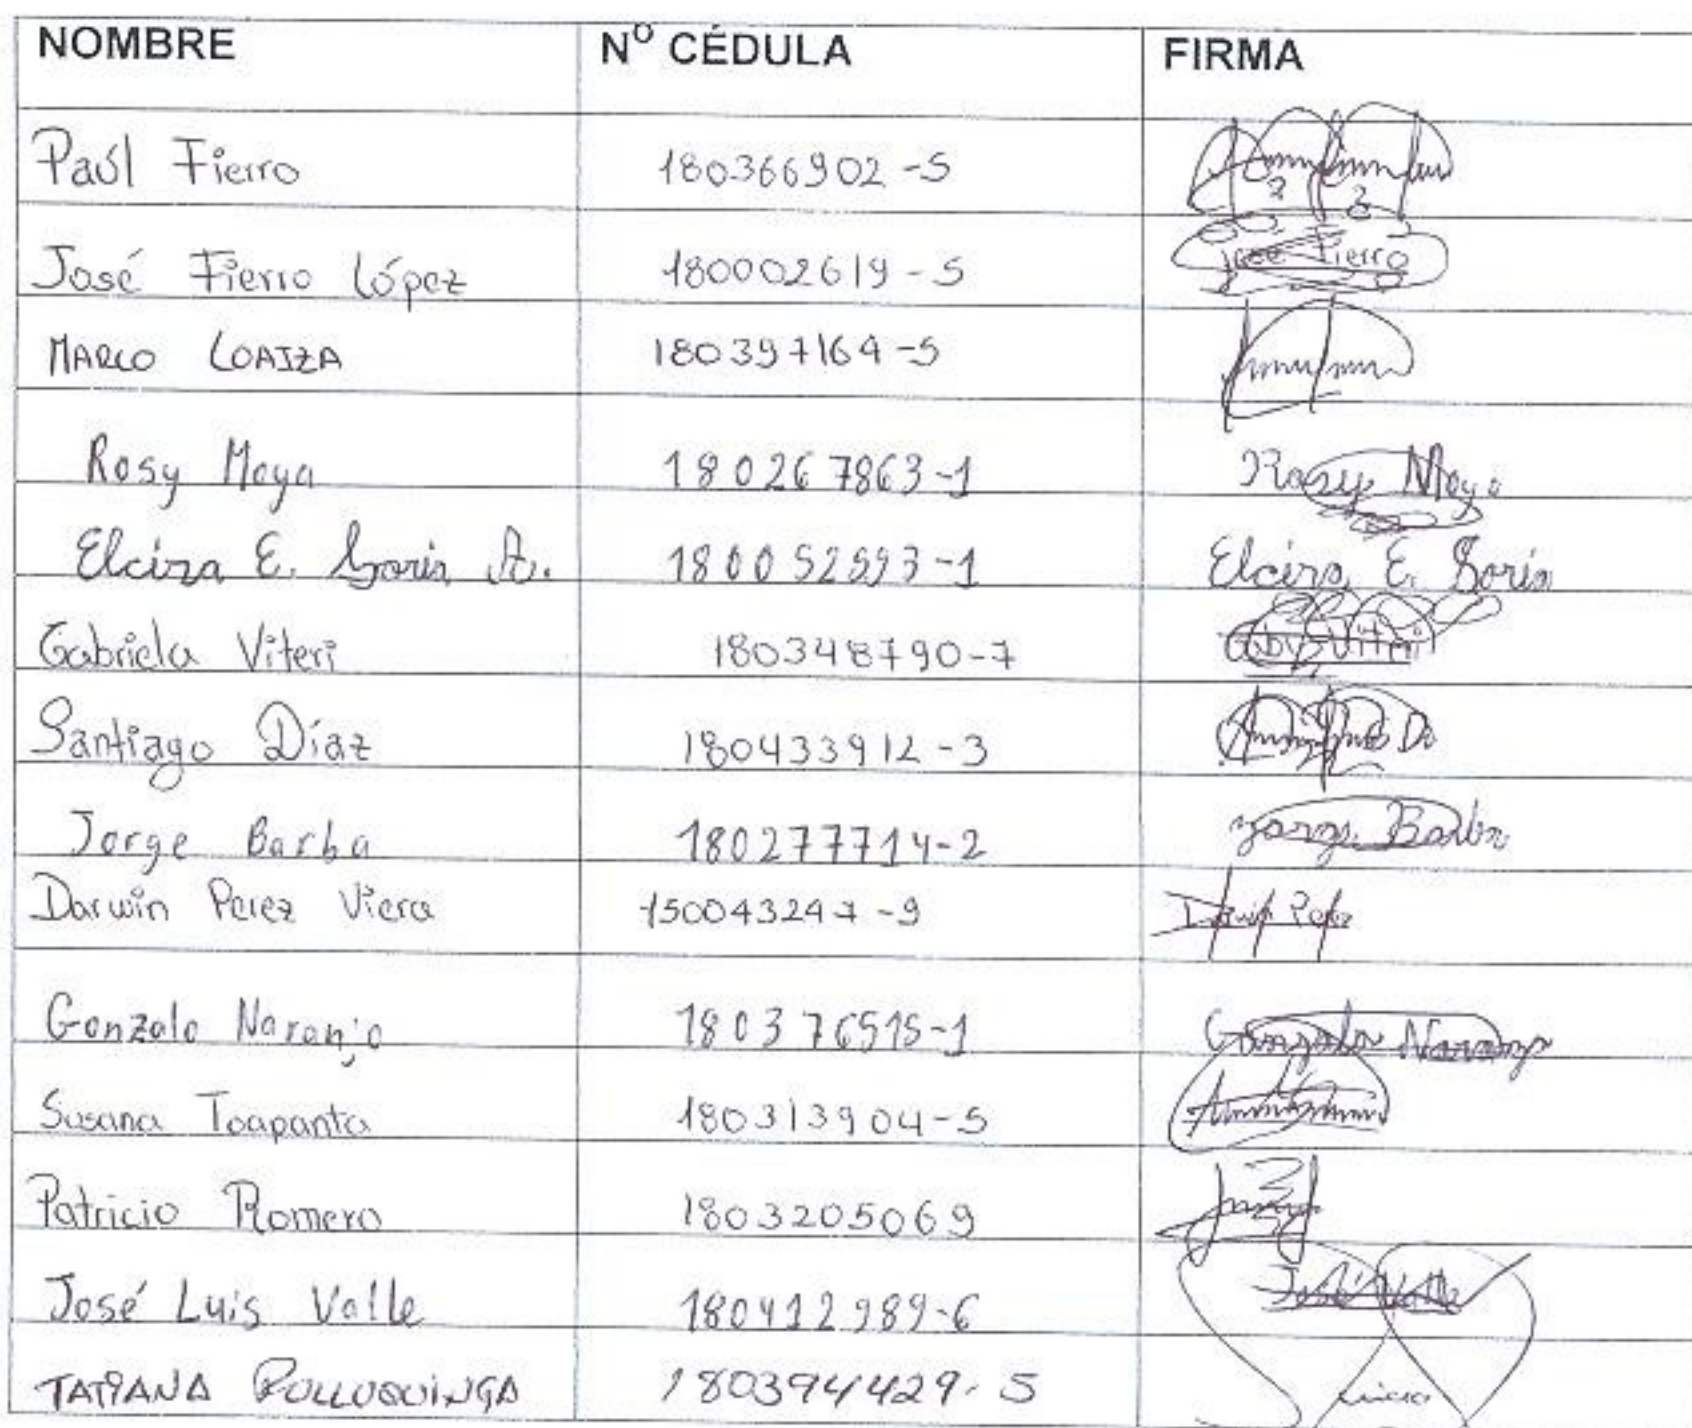 NOMBRE Nº CÉDULA FIRMA
Paúl Fierro 180366902-5
José Fierro López 180002619-5 José Fierro
MARCO LOAIZA 180397164-5
Rosy Moya 180267863-1 Rosy Moya
Elcira E. Soria A. 180052593-1 Elcira E. Soria
Gabriela Viteri 180348790-7 Gaby Viteri
Santiago Díaz 180433912-3
Jorge Barba 180277714-2 Jorge Barba
Darwin Perez Viera 150043247-9
Gonzalo Naranjo 180376515-1 Gonzalo Naranjo
Susana Toapanta 180313904-5
Patricio Romero 1803205069
José Luis Valle 180412989-6 José Valle
TATIANA PULLUQUINGA 180394429-5